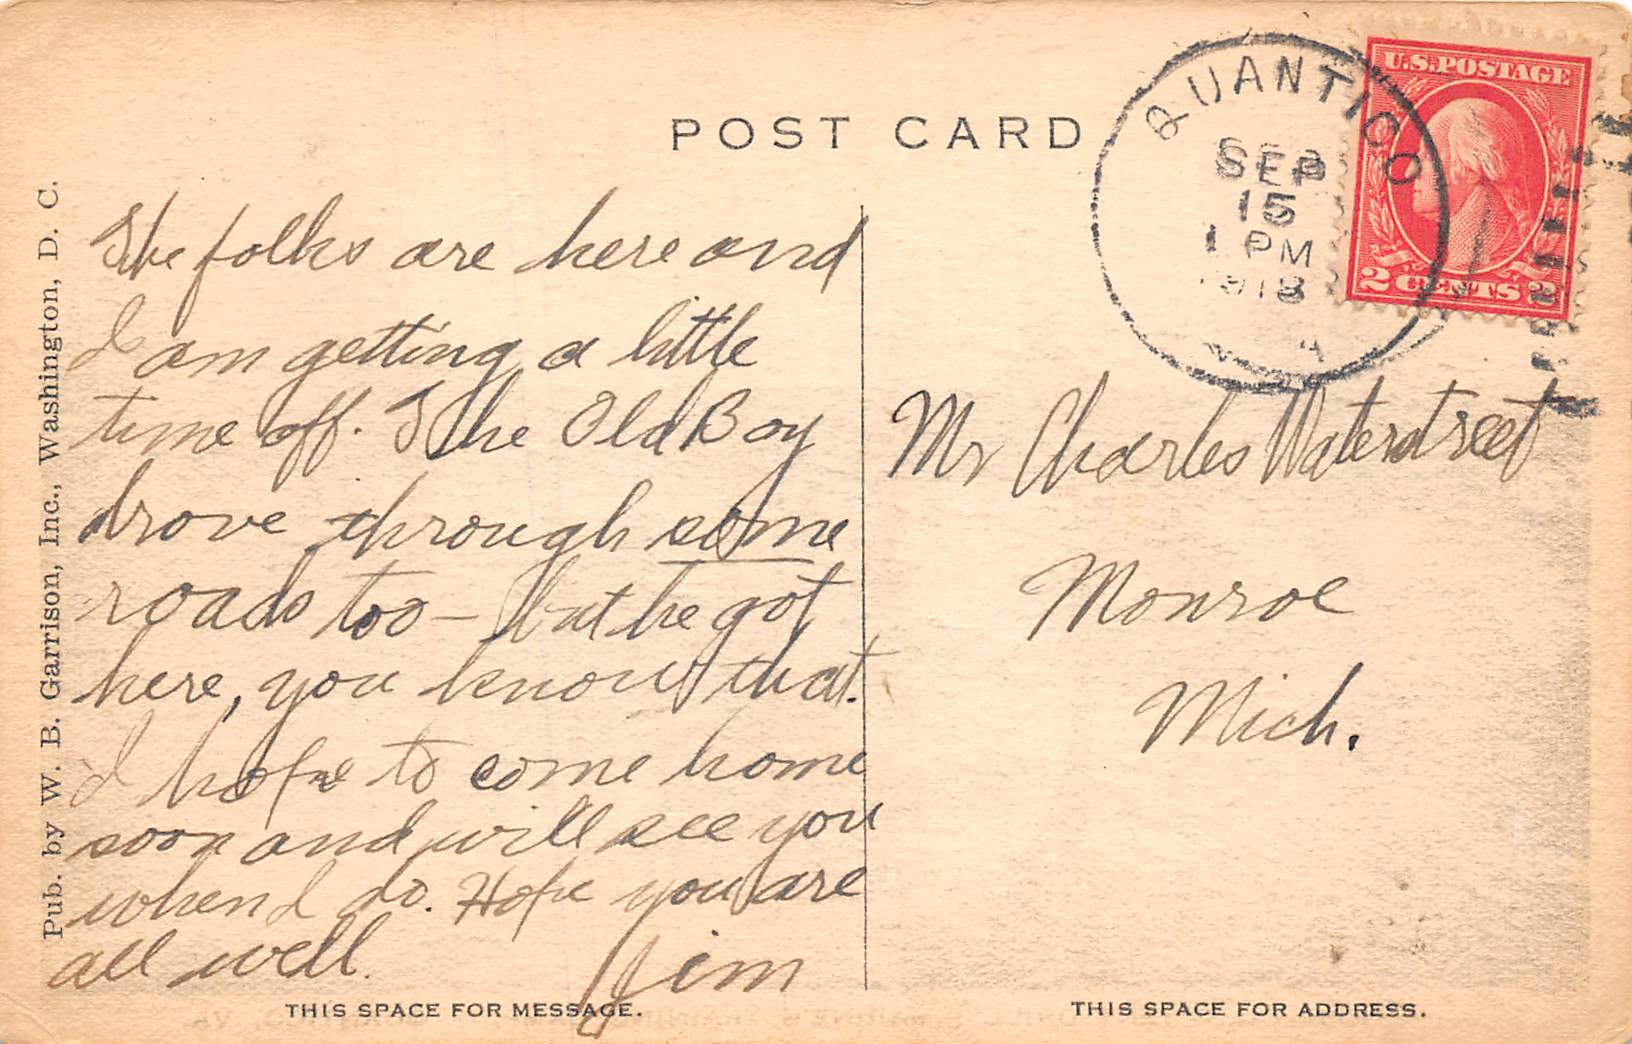 POST CARD
QUANTICO
SEP
15
1 PM
1918
VA
U.S. POSTAGE
2 CENTS 2
Pub. by W. B. Garrison, Inc., Washington, D. C.
The folks are here and
I am getting a little
time off. The Old Boy
drove through some
roads too — but he got
here, you know that.
I hope to come home
soon and will see you
when I do. Hope you are
all well.
Jim
Mr Charles Waterstreet
Monroe
Mich.
THIS SPACE FOR MESSAGE.
THIS SPACE FOR ADDRESS.